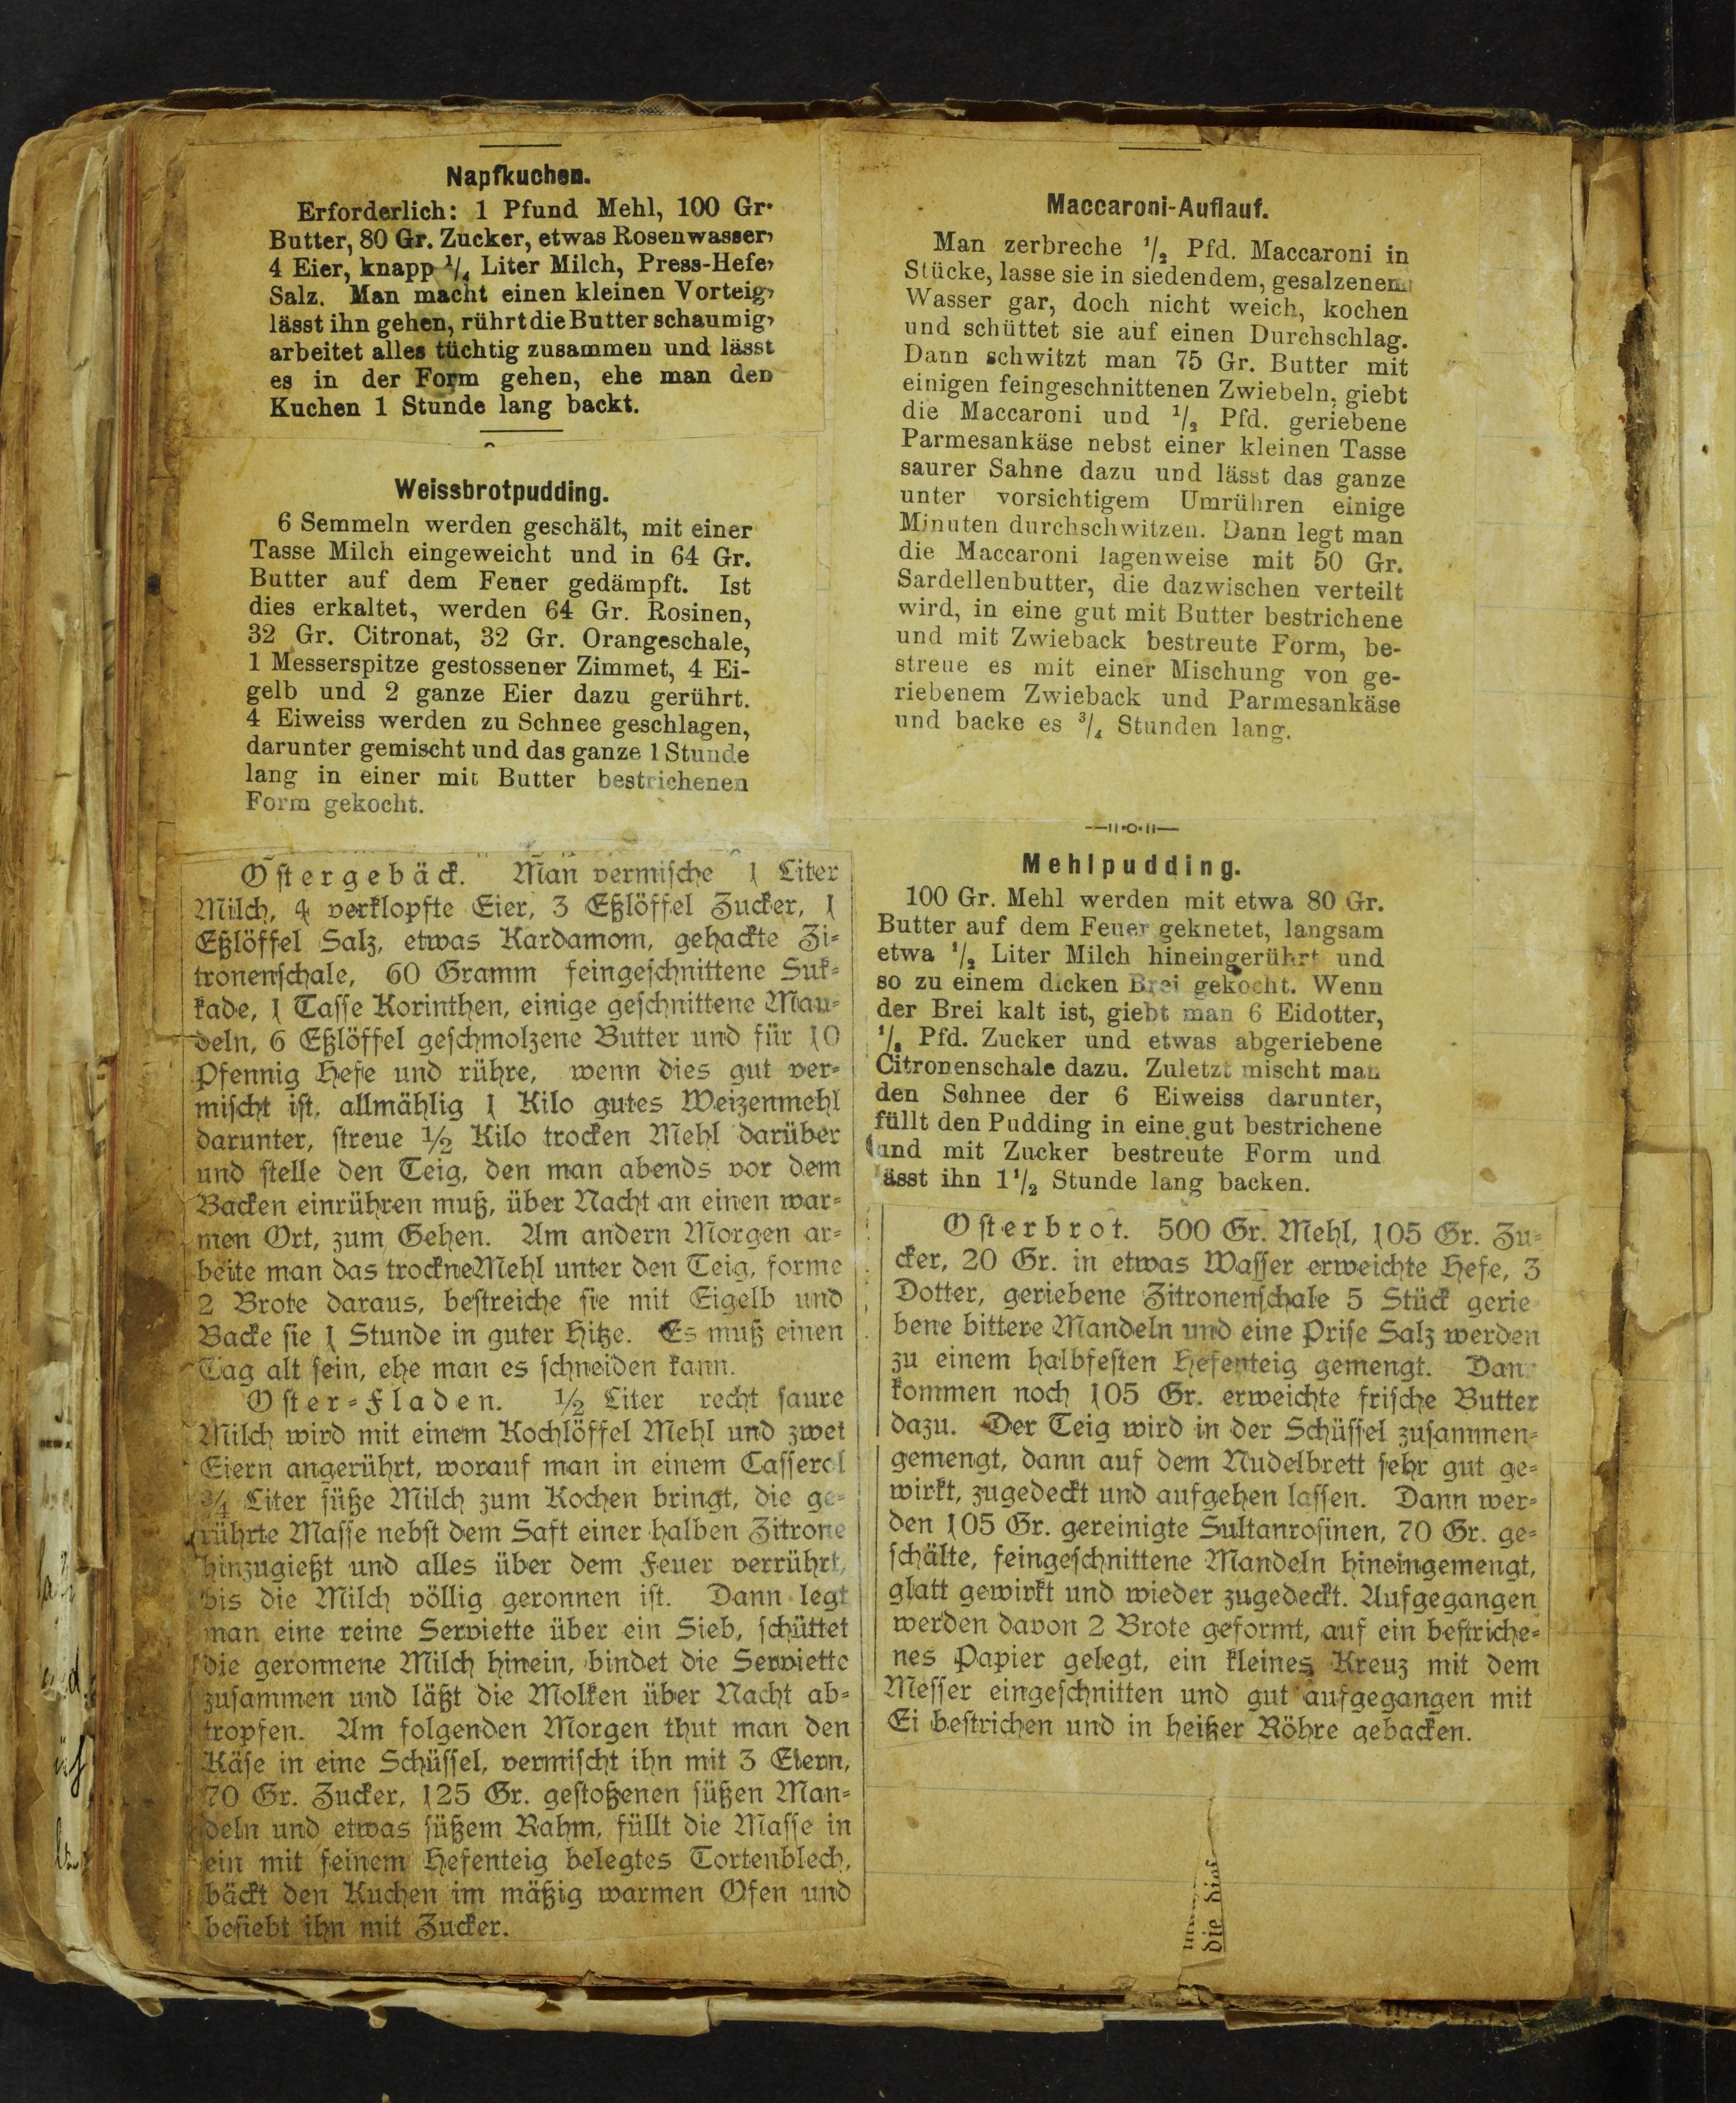 Napfkuchen.
Erforderlich: 1 Pfund Mehl, 100 Gr.
Butter, 80 Gr. Zucker, etwas Rosenwasser,
4 Eier, knapp 1/4 Liter Milch, Press-Hefe,
Salz. Man macht einen kleinen Vorteig,
lässt ihn gehen, rührt die Butter schaumig,
arbeitet alles tüchtig zusammen und lässt
es in der Form gehen, ehe man den
Kuchen 1 Stunde lang backt.
Weissbrotpudding.
6 Semmeln werden geschält, mit einer
Tasse Milch eingeweicht und in 64 Gr.
Butter auf dem Feuer gedämpft. Ist
dies erkaltet, werden 64 Gr. Rosinen,
32 Gr. Citronat, 32 Gr. Orangeschale,
1 Messerspitze gestossener Zimmet, 4 Ei-
gelb und 2 ganze Eier dazu gerührt.
4 Eiweiss werden zu Schnee geschlagen,
darunter gemischt und das ganze 1 Stunde
lang in einer mit Butter bestrichenen
Form gekocht.
Ostergebäck. Man vermische 1 Liter
Milch, 4 verklopfte Eier, 3 Eßlöffel Zucker, 1
Eßlöffel Salz, etwas Kardamom, gehackte Zi-
tronenschale, 60 Gramm feingeschnittene Suk-
kade, 1 Tasse Korinthen, einige geschnittene Man-
deln, 6 Eßlöffel geschmolzene Butter und für 10
Pfennig Hefe und rühre, wenn dies gut ver-
mischt ist, allmählig 1 Kilo gutes Weizenmehl
darunter, streue 1/2 Kilo trocken Mehl darüber
und stelle den Teig, den man abends vor dem
Backen einrühren muß, über Nacht an einen war-
men Ort, zum Gehen. Am andern Morgen ar-
beite man das trockne Mehl unter den Teig, forme
2 Brote daraus, bestreiche sie mit Eigelb und
Backe sie 1 Stunde in guter Hitze. Es muß einen
Tag alt sein, ehe man es schneiden kann.
Oster-Fladen. 1/2 Liter recht saure
Milch wird mit einem Kochlöffel Mehl und zwei
Eiern angerührt, worauf man in einem Casserol
3/4 Liter süße Milch zum Kochen bringt, die ge-
rührte Masse nebst dem Saft einer halben Zitrone
hinzugießt und alles über dem Feuer verrührt,
bis die Milch völlig geronnen ist. Dann legt
man eine reine Serviette über ein Sieb, schüttet
die geronnene Milch hinein, bindet die Serviette
zusammen und läßt die Molken über Nacht ab-
tropfen. Am folgenden Morgen thut man den
Käse in eine Schüssel, vermischt ihn mit 3 Eiern,
70 Gr. Zucker, 125 Gr. gestoßenen süßen Man-
deln und etwas süßem Rahm, füllt die Masse in
ein mit feinem Hefenteig belegtes Tortenblech,
bäckt den Kuchen im mäßig warmen Ofen und
besiebt ihn mit Zucker.
Maccaroni-Auflauf.
Man zerbreche 1/2 Pfd. Maccaroni in
Stücke, lasse sie in siedendem, gesalzenem
Wasser gar, doch nicht weich, kochen
und schüttet sie auf einen Durchschlag.
Dann schwitzt man 75 Gr. Butter mit
einigen feingeschnittenen Zwiebeln, giebt
die Maccaroni und 1/2 Pfd. geriebene
Parmesankäse nebst einer kleinen Tasse
saurer Sahne dazu und lässt das ganze
unter vorsichtigem Umrühren einige
Minuten durchschwitzen. Dann legt man
die Maccaroni lagenweise mit 50 Gr.
Sardellenbutter, die dazwischen verteilt
wird, in eine gut mit Butter bestrichene
und mit Zwieback bestreute Form, be-
streue es mit einer Mischung von ge-
riebenem Zwieback und Parmesankäse
und backe es 3/4 Stunden lang.
Mehlpudding.
100 Gr. Mehl werden mit etwa 80 Gr.
Butter auf dem Feuer geknetet, langsam
etwa 1/2 Liter Milch hineingerührt und
so zu einem dicken Brei gekocht. Wenn
der Brei kalt ist, giebt man 6 Eidotter,
Pfd. Zucker und etwas abgeriebene
Citronenschale dazu. Zuletzt mischt man
den Schnee der 6 Eiweiss darunter,
füllt den Pudding in eine gut bestrichene
und mit Zucker bestreute Form und
ässt ihn 1 1/2 Stunde lang backen.
Osterbrot. 500 Gr. Mehl, 105 Gr. Zu-
cker, 20 Gr. in etwas Wasser erweichte Hefe, 3
Dotter, geriebene Zitronenschale 5 Stück gerie
bene bittere Mandeln und eine Prise Salz werden
zu einem halbfesten Hefenteig gemengt. Dan
kommen noch 105 Gr. erweichte frische Butter
dazu. Der Teig wird in der Schüssel zusammen-
gemengt, dann auf dem Nudelbrett sehr gut ge-
wirkt, zugedeckt und aufgehen lassen. Dann wer-
den 105 Gr. gereinigte Sultanrosinen, 70 Gr. ge-
schälte, feingeschnittene Mandeln hineingemengt,
glatt gewirkt und wieder zugedeckt. Aufgegangen
werden davon 2 Brote geformt, auf ein bestriche-
nes Papier gelegt, ein kleines Kreuz mit dem
Messer eingeschnitten und gut aufgegangen mit
Ei bestrichen und in heißer Röhre gebacken.
die